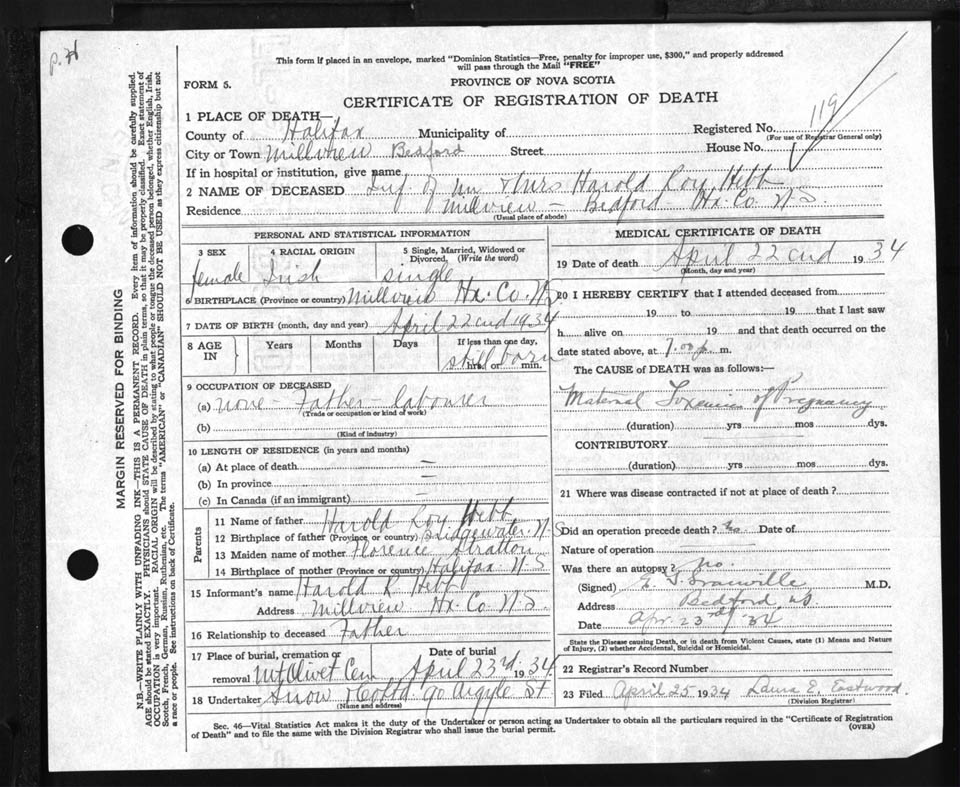 P. 71
This form if placed in an envelope, marked "Dominion Statistics—Free, penalty for improper use, $300," and properly addressed
will pass through the Mail "FREE"
FORM 5.
PROVINCE OF NOVA SCOTIA
CERTIFICATE OF REGISTRATION OF DEATH
1 PLACE OF DEATH—
County of Halifax Municipality of Registered No. 119
(For use of Registrar General only)
City or Town Millview Bedford Street House No.
If in hospital or institution, give name
2 NAME OF DECEASED Inf. of Mr & Mrs Harold Roy Hebb
Residence Millview - Bedford Hx. Co. N.S.
(Usual place of abode)
PERSONAL AND STATISTICAL INFORMATION
3 SEX 4 RACIAL ORIGIN 5 Single, Married, Widowed or
Divorced. (Write the word)
female Irish single
6 BIRTHPLACE (Province or country) Millview Hx. Co. N.S.
7 DATE OF BIRTH (month, day and year) April 22cnd 1934
8 AGE IN Years Months Days If less than one day,
still born
hrs. or min.
9 OCCUPATION OF DECEASED
(a) none - Father labourer
(Trade of occupation or kind of work)
(b)
(Kind of industry)
10 LENGTH OF RESIDENCE (in years and months)
(a) At place of death —
(b) In province —
(c) In Canada (if an immigrant) —
Parents
11 Name of father Harold Roy Hebb
12 Birthplace of father (Province or country) Bridgewater N.S
13 Maiden name of mother Florence Stratton
14 Birthplace of mother (Province or country) Halifax N.S
15 Informant's name Harold R Hebb
Address Millview Hx. Co N.S.
16 Relationship to deceased Father
17 Place of burial, cremation or Date of burial
removal Mt Olivet Cem April 23rd 1934
18 Undertaker Snow & Co Ltd. 90 Argyle St
(Name and address)
MEDICAL CERTIFICATE OF DEATH
19 Date of death April 22cnd 1934
(Month, day and year)
20 I HEREBY CERTIFY that I attended deceased from
19 to 19 that I last saw
h alive on 19 and that death occurred on the
date stated above, at 7.00 p. m.
The CAUSE of DEATH was as follows:—
Maternal Toxemia of Pregnancy
(duration) yrs mos dys.
CONTRIBUTORY
(duration) yrs mos dys.
21 Where was disease contracted if not at place of death?
Did an operation precede death? no Date of
Nature of operation
Was there an autopsy? no.
(Signed) M.D.
Address Bedford, N.S.
Date Apr. 23rd '34
State the Disease causing Death, or in death from Violent Causes, state (1) Means and Nature
of Injury, (2) whether Accidental, Suicidal or Homicidal.
22 Registrar's Record Number
23 Filed April 25 1934 Laura E. Eastwood.
(Division Registrar)
Sec. 46—Vital Statistics Act makes it the duty of the Undertaker or person acting as Undertaker to obtain all the particulars required in the "Certificate of Registration
of Death" and to file the same with the Division Registrar who shall issue the burial permit.
(OVER)
MARGIN RESERVED FOR BINDING
N.B.—WRITE PLAINLY WITH UNFADING INK—THIS IS A PERMANENT RECORD. Every item of information should be carefully supplied.
AGE should be stated EXACTLY. PHYSICIANS should STATE CAUSE OF DEATH in plain terms, so that it may be properly classified. Exact statement of
OCCUPATION is very important. RACIAL ORIGIN will be described by stating to what people or tongue the deceased person belonged, whether English, Irish,
Scotch, French, German, Russian, Ruthenian, etc. The terms "AMERICAN" or "CANADIAN" SHOULD NOT BE USED as they express citizenship but not
a race or people. See instructions on back of Certificate.